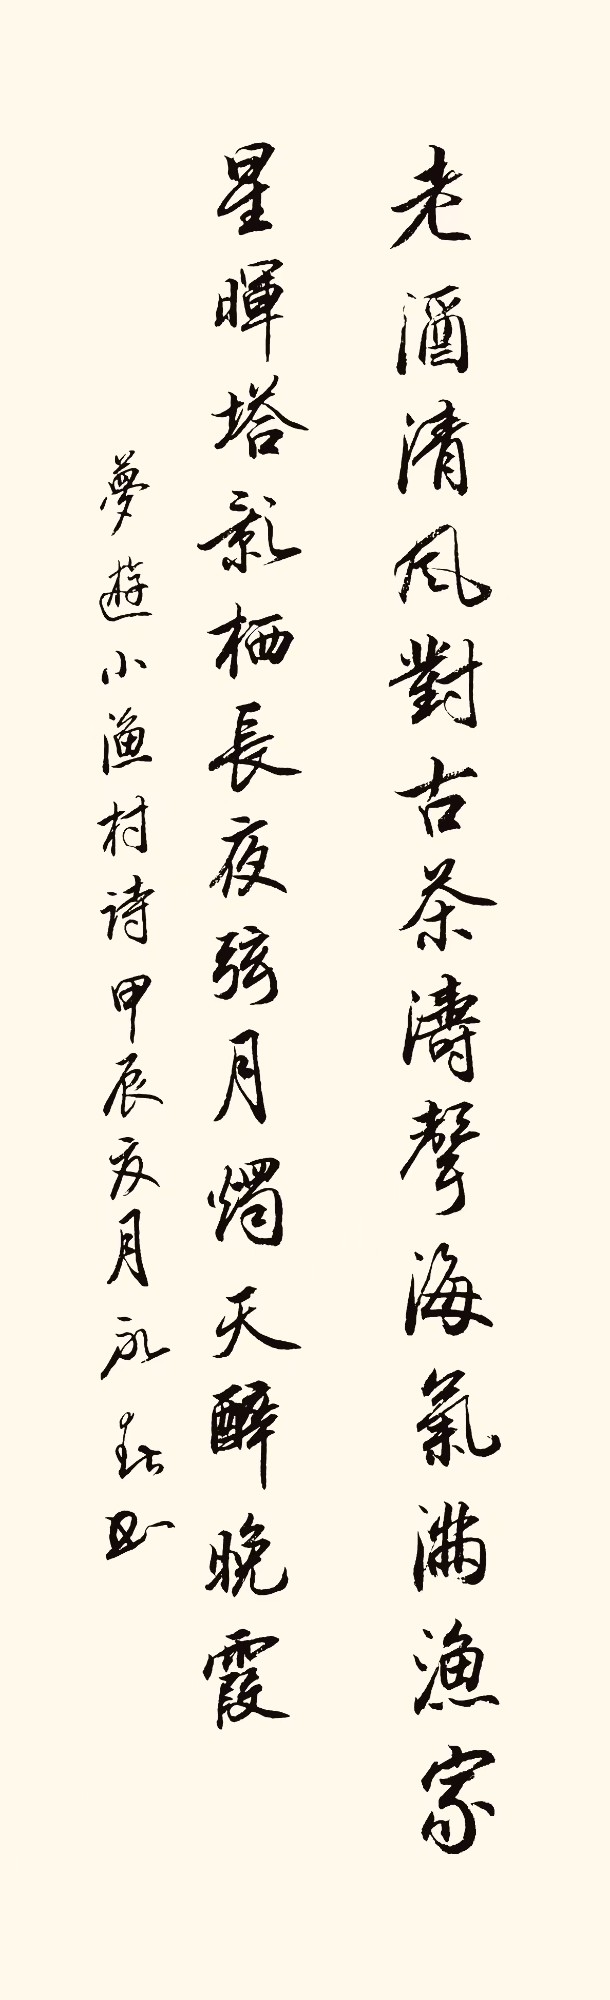 老酒清風對古茶濤聲海氣滿漁家
星暉塔影栖長夜弦月燭天醉晚霞
夢遊小漁村诗甲辰亥月永